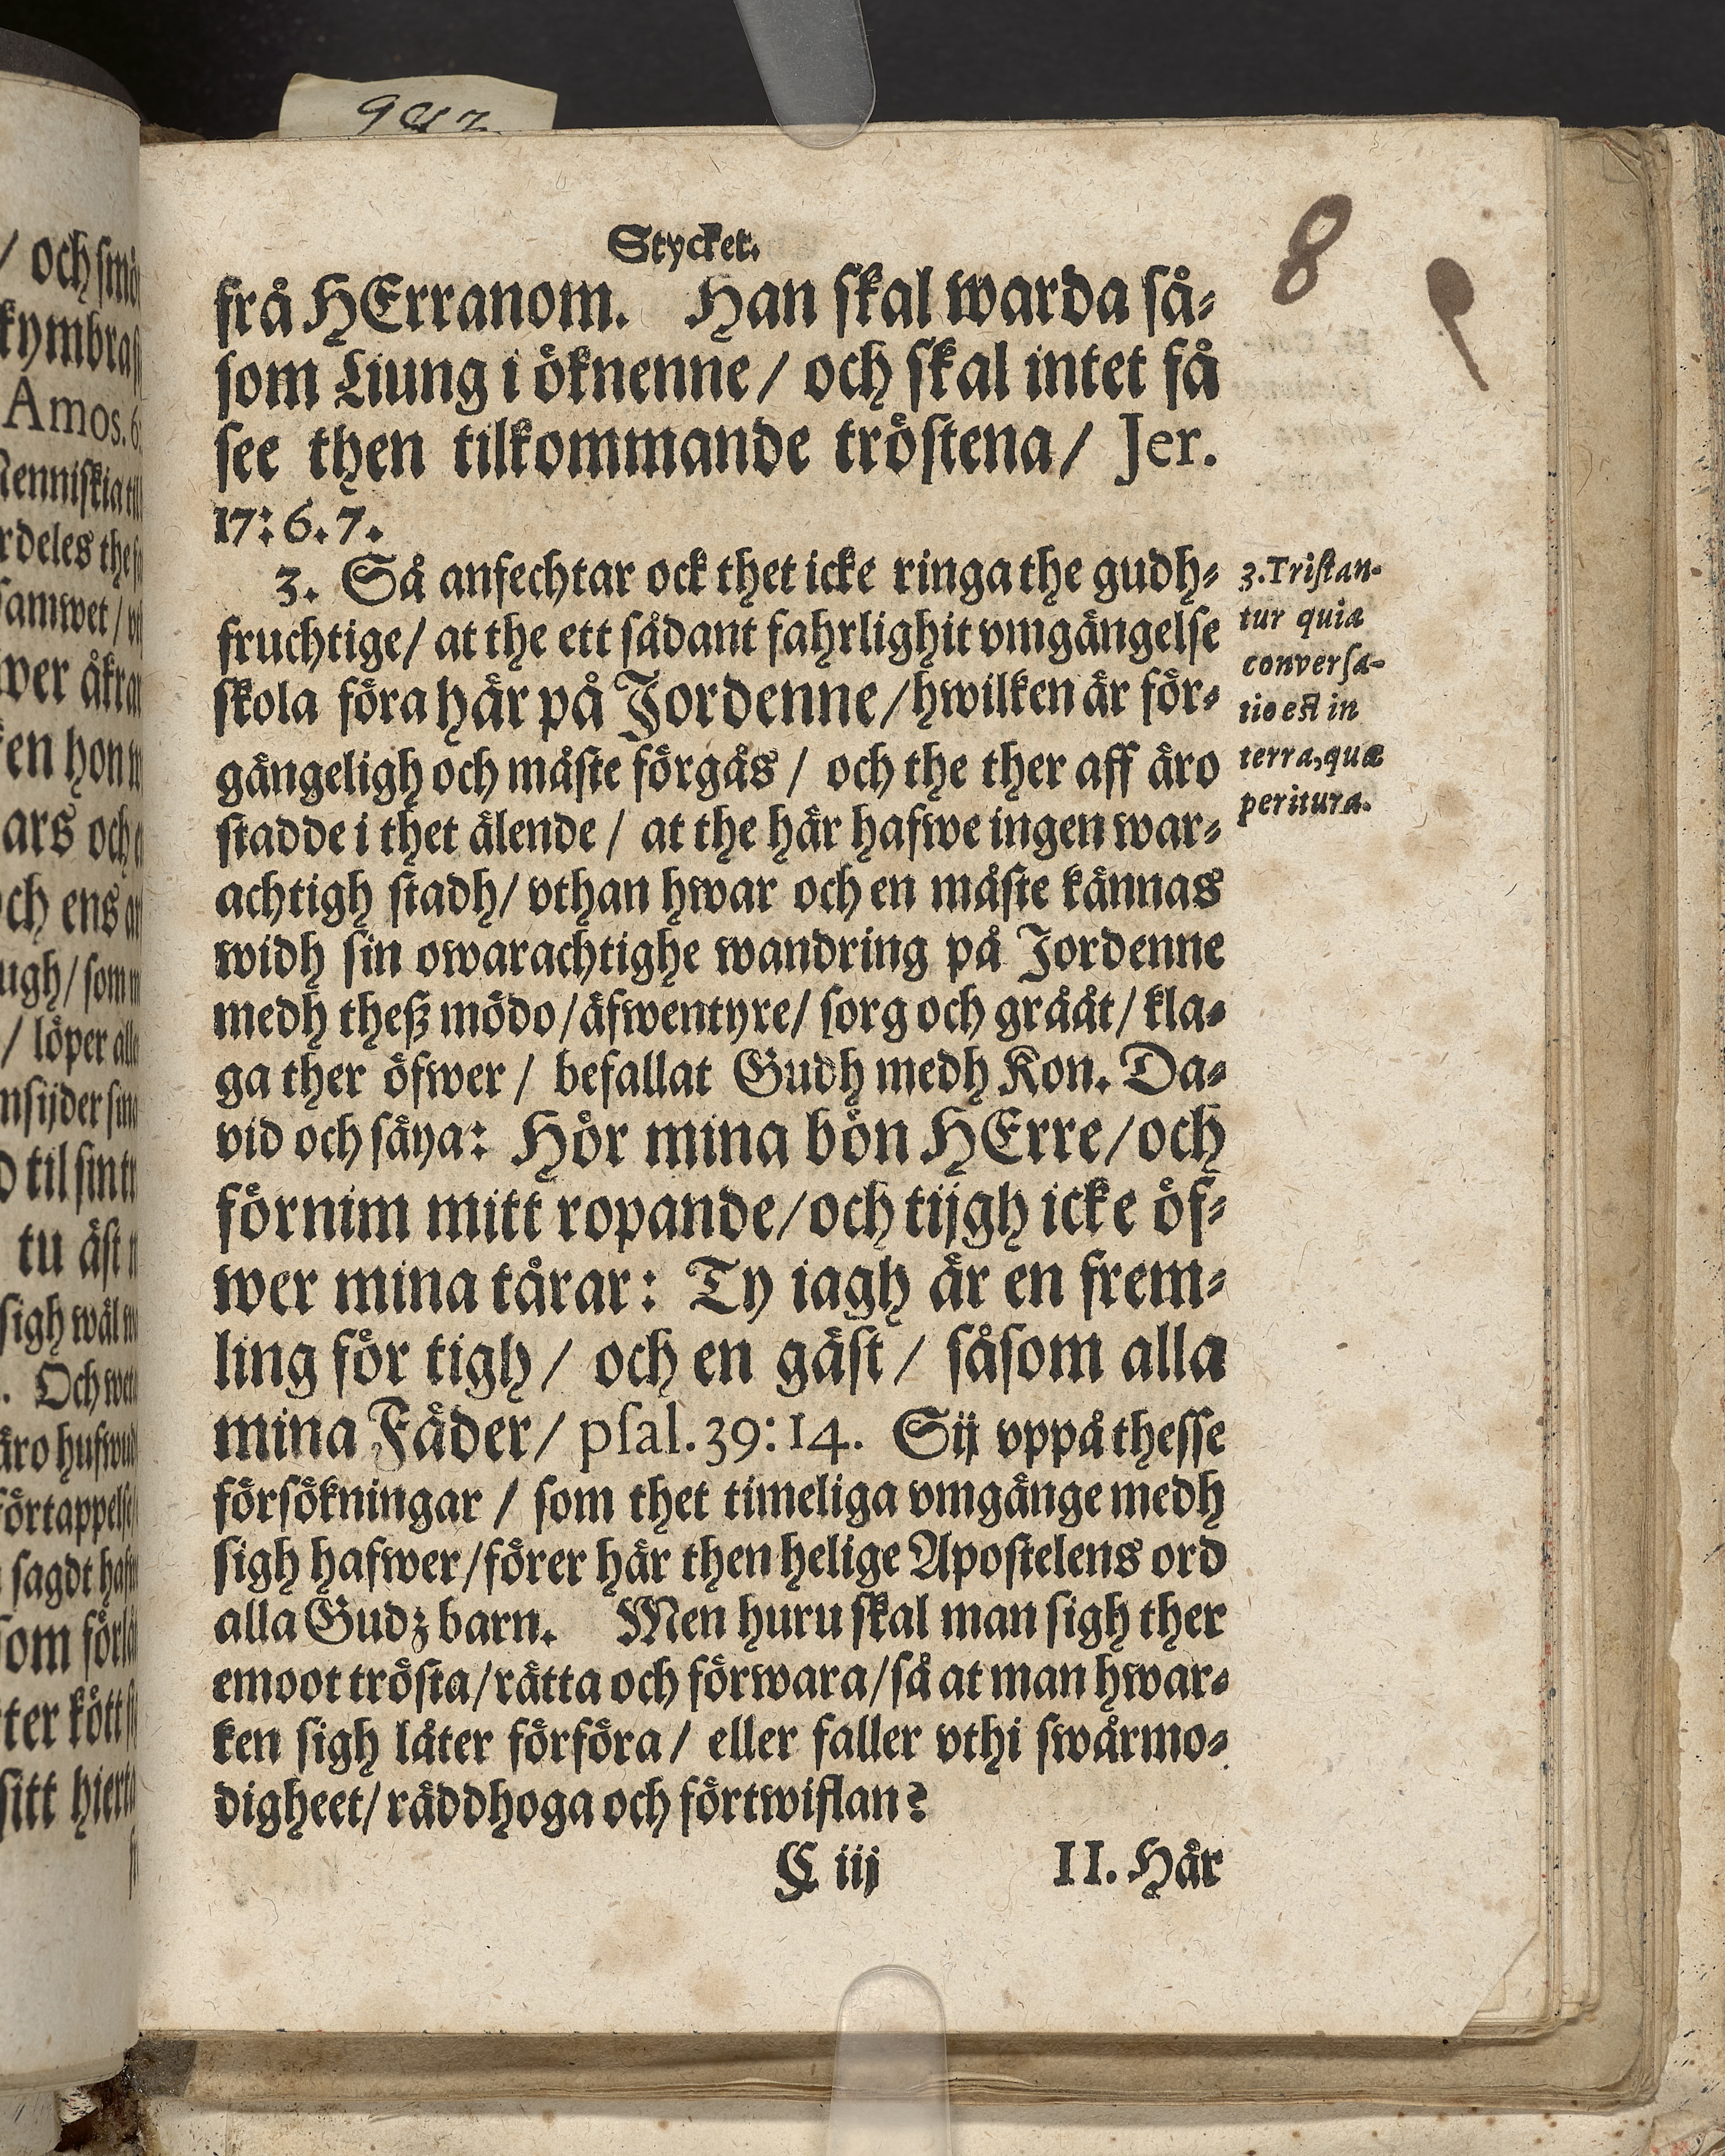 Stycket.
8
frå HErranom. Han skal warda så-
som Liung i öknenne / och skal intet få
see then tilkommande tröstena / Jer.
17: 6. 7.
3. Så anfechtar ock thet icke ringa the gudh-
fruchtige / at the ett sådant fahrlighit vmgängelse
skola föra här på Jordenne / hwilken är för-
gängeligh och måste förgås / och the ther aff äro
stadde i thet älende / at the här hafwe ingen war-
achtigh stadh / vthan hwar och en måste kännas
widh sin owarachtighe wandring på Jordenne
medh theß mödo / äfwentyre / sorg och grååt / kla-
ga ther öfwer / befallat Gudh medh Kon. Da-
vid och säya: Hör mina bön HErre / och
förnim mitt ropande / och tijgh icke öf-
wer mina tårar: Ty iagh är en frem-
ling för tigh / och en gäst / såsom alla
mina Fäder / psal. 39: 14. Sij vppå thesse
försökningar / som thet timeliga vmgänge medh
sigh hafwer / förer här then helige Apostelens ord
alla Gudz barn. Men huru skal man sigh ther
emoot trösta / rätta och förwara / så at man hwar-
ken sigh låter förföra / eller faller vthi swårmo-
digheet / räddhoga och förtwiflan?
C iij II. Här
3. Tristan-
tur quia
conversa-
tio est in
terra, quæ
peritura.
/ och
kymbra
Amos. 6:
rdeles the
samwet /
wer åkrar
en hon
ars och
och ens
ugh / som
/ löper alle
til sin
tu äst
sigh wäl
. Och
äro hufwud
förtappelse
sagdt
som
ter kött
sitt hierta